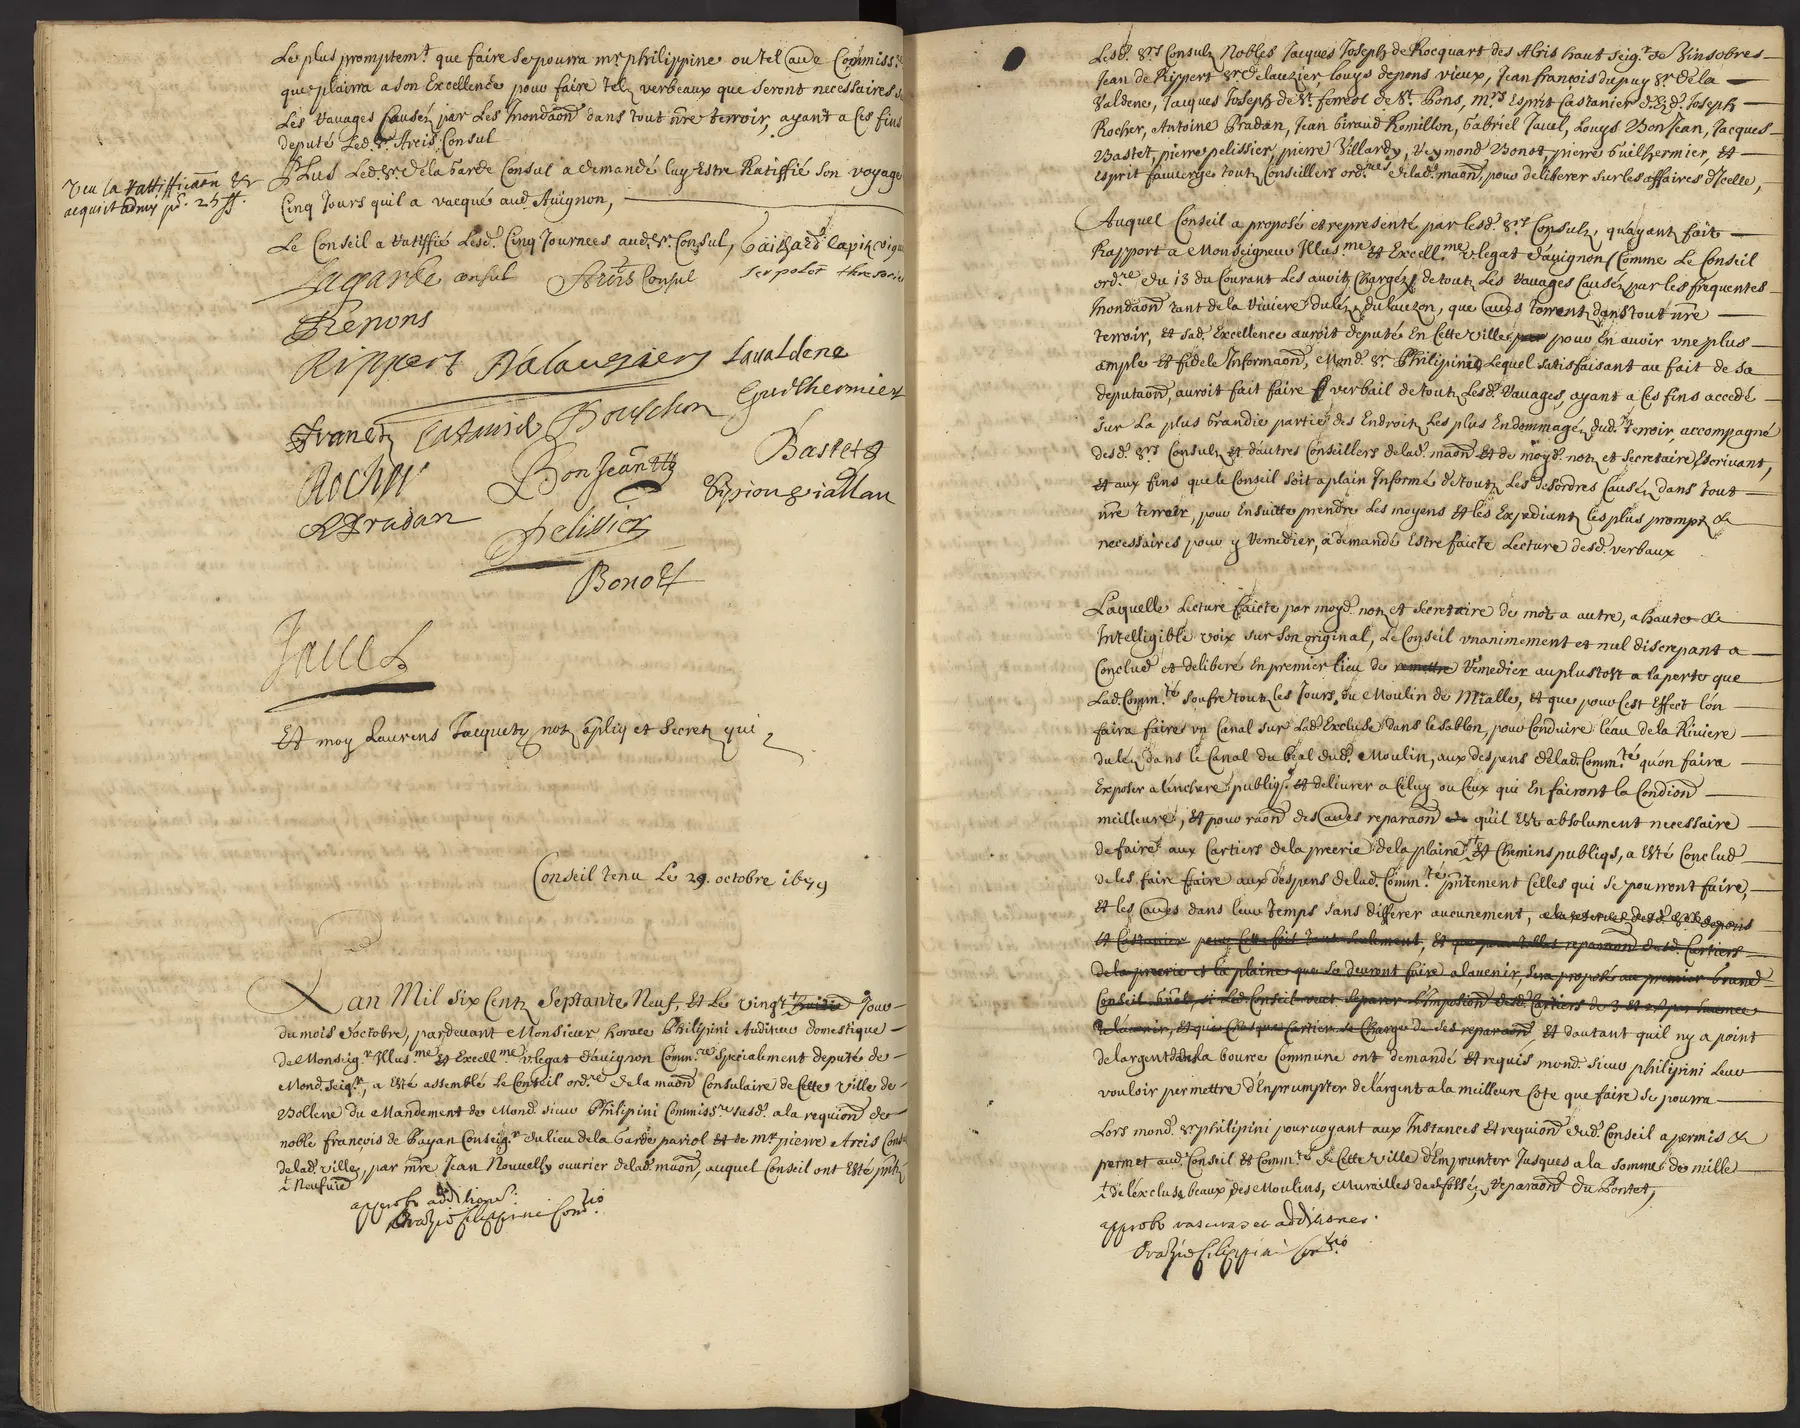 Le plus promptemt. que faire se pourra mr. philippine ou tel aue Commissre
que plaira a son Excellence pour faire telz verbeaux que seront necessaires
Les ravages causéz par Les Inondaōn dans tout nre terroir, ayant a ces fins
deputé Led. Sr. Areis Consul
Plus Led. Sr. de la Garde Consul a demandé luy estre Ratiffié son voyage
Cinq Jours qu'il a vacqué aud. Avignon,
Veu la rattifficaōn &
acquit admis pr. 25 ff.
Le Conseil a ratiffié Lesd. Cinq Journees aud. Sr. Consul,
Lagarde consul Areis Consul
Depons
Rippert Dalauzier Lavaldene
Guilhermier
Rocher Bonjean Bastet
APradan Pelissier
Bonot
Javel
Et moy Laurens Jacquetz notre. et Secretre qui
Conseil tenu Le 29. octobre 1679
L'an Mil Six Centz Septante Neuf, Et Le vingt huitie Jour
du mois d'octobre, pardevant Monsieur horace Philipini Auditeur domestique
de Monseigr. Illusme. et Excellme. vlegat d'avignon Commre. specialement deputé de
Mond. Seigr., a esté assemblé le Conseil ordre. de la maōn Consulaire de Cette ville de
Bollene du Mandement de Mond. sieur Philipini Commissre. susd. a la requiōn de
noble françois de Payan Conseigr. du lieu de la Garde pariol et de mr. pierre Areis Consul
de lad. ville, par mre Jean Nouvelly ouvrier de lad. maōn, auquel Conseil ont esté pntz
t Neufvie
approbo additiones.
Oratio filippini Comrio.
Lesd. Srs Consulz Nobles Jacques Joseph de Rocquart des Alris haut Seigr. de Vinsobres
Jean de Rippert Sr. D'elauzier, Louys depons vieux, Jean françois dupuy Sr. de la
Valdene, Jacques Joseph de St. ferreol de St. Pons, mrs. Esprit Castanier Joseph
Rocher, Antoine Pradan, Jean Giraud Romillon, Gabriel Javel, Louys Bonjean, Jacques
Bastet, pierre pelissier, pierre Villardy, Reymond Bonot, pierre Guilhermier, et
Esprit fauverge touts Conseillers ordres. de lad. maōn, pour deliberer sur les affaires d'Icelle,
Auquel Conseil a proposé et representé par lesd. Srs. Consulz, qu'ayant fait
Rapport a Monseigneur Illusme. et Excellme. vlegat d'avignon (Comme Le Conseil
ordre. du 13 du Courant Les avoit Chargéz) de toutz Les ravages Causéz par les frequentes
Inondaōn tant de la riviere du léz, du lauzon, que aues torrentz dans tout nre
terroir, et sad. Excellence auroit deputé En Cette ville pour En avoir vne plus
ample et fidele Informaōn, Mond. Sr. Philipini, Lequel satisfaisant au fait de sa
deputaōn, auroit fait faire verbail de toutz Lesd. Ravages, ayant a Ces fins accedé
sur La plus Grandie partie des Endroitz Les plus Endommagéz dud. terroir, accompagné
desd. Srs Consulz et d'autres Conseillers de lad. maōn et de moyd. notre et secretaire Escrivant,
et aux fins que le Conseil soit a plain Informé de toutz Les desordres Causéz dans tout
nre terroir, pour Ensuitte prendre Les moyens et les Expediantz les plus promptz &
necessaires pour y remedier, a demandé Estre faicte Lecture desd. verbaux
Laquelle Lecture faicte par moyd. notre et secretaire de mot a autre, a haute &
Intelligible voix sur son original, Le Conseil vnanimement et nul discrepant a
Conclud et deliberé En premier lieu de remettre Remedier au plustost a la perte que
Lad. Commté. soufre toutz les Jours, du Moulin de Mialle, et que pour Cest Effect l'on
faira faire vn Canal sur Lad. Excluse dans le sablon, pour Conduire l'eau de la Riviere
du léz dans le Canal du béal dud. Moulin, aux despens de lad. Commté. qu'on faira
Exposer a l'inchere publiqs. et delivrer a Celuy ou Ceux qui En fairont la Condiōn
meilleure, et pour raōn des aues reparaōn qu'il est absolument necessaire
de faire aux Cartiers de la preerie de la plaine t et Chemins publiqs, a esté Conclud
de les faire faire aux despens de lad. Commté. pntement Celles qui se pourront faire,
et les aues dans leur temps sans differer aucunement, a la reserve desd. Srs depons
et Castanier pour Cette fois tant seulement, et que pour telles reparaōn desd. Cartiers
de la preerie et la plaine que se devront faire a l'avenir, sera proposé au premier Grand
Conseil Gnal, si Led. Conseil veut separer L'Imposiōn desd. Cartiers
a l'avenir, et que Chasque Cartier se Charge de ses reparaōn, et d'autant qu'il n'y a point
de l'argent dans la bource Commune ont demandé et requis mond. sieur philipini Leur
vouloir permettre d'Enprumpter de l'argent a la meilleure Cote que faire se pourra
Lors mond. Sr philipini pourvoyant aux Instances et requiōn dud. Conseil a permis &
permet aud. Conseil et Commté. de Cette ville d'Emprunter Jusques a la somme de mille
t de l'excluse, beaux des Moulins, Murailles des fosséz, reparaōn du Pontet,
approbo rasuras et additiones.
Oratio filippini Comrio.